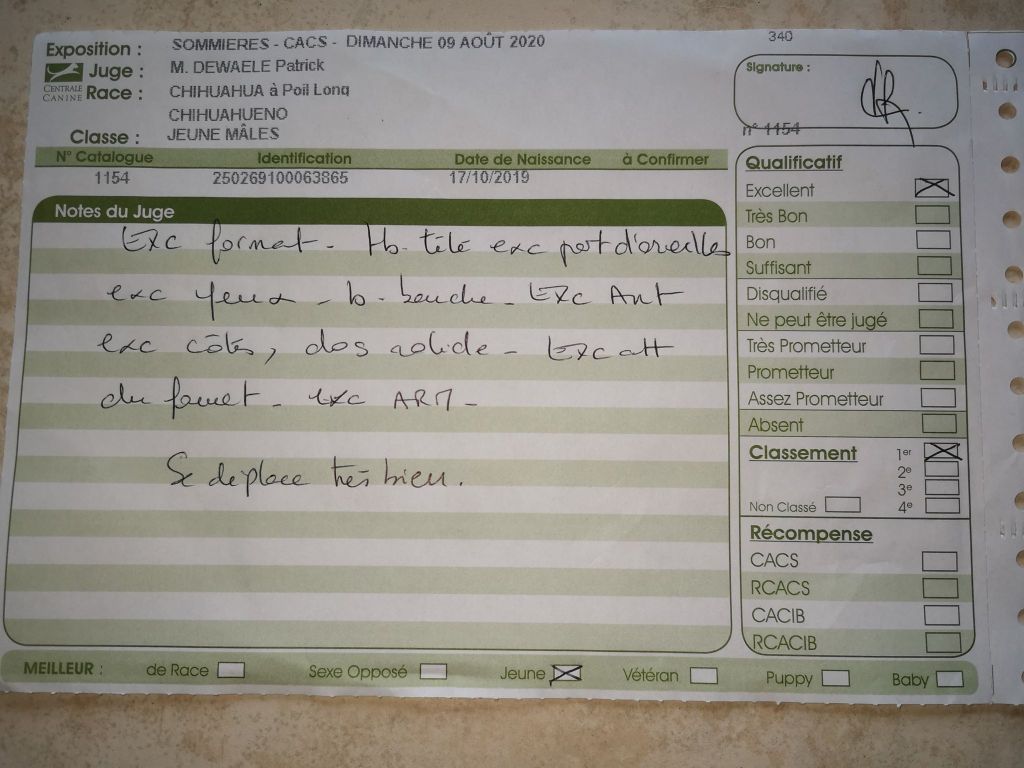 340
Exposition : SOMMIERES - CACS - DIMANCHE 09 AOÛT 2020
Juge : M. DEWAELE Patrick
CENTRALE CANINE
Race : CHIHUAHUA à Poil Long
CHIHUAHUENO
Classe : JEUNE MÂLES
Signature :
n° 1154
N° Catalogue Identification Date de Naissance à Confirmer
1154 250269100063865 17/10/2019
Notes du Juge
Exc format - tb. tête exc port d'oreilles
exc yeux - b. bouche - Exc Ant
exc côtés, dos solide - Exc att
du fouet - exc ARR -
Se déplace très bien.
Qualificatif
Excellent
Très Bon
Bon
Suffisant
Disqualifié
Ne peut être jugé
Très Prometteur
Prometteur
Assez Prometteur
Absent
Classement 1er
2e
3e
Non Classé 4e
Récompense
CACS
RCACS
CACIB
RCACIB
MEILLEUR : de Race Sexe Opposé Jeune Vétéran Puppy Baby